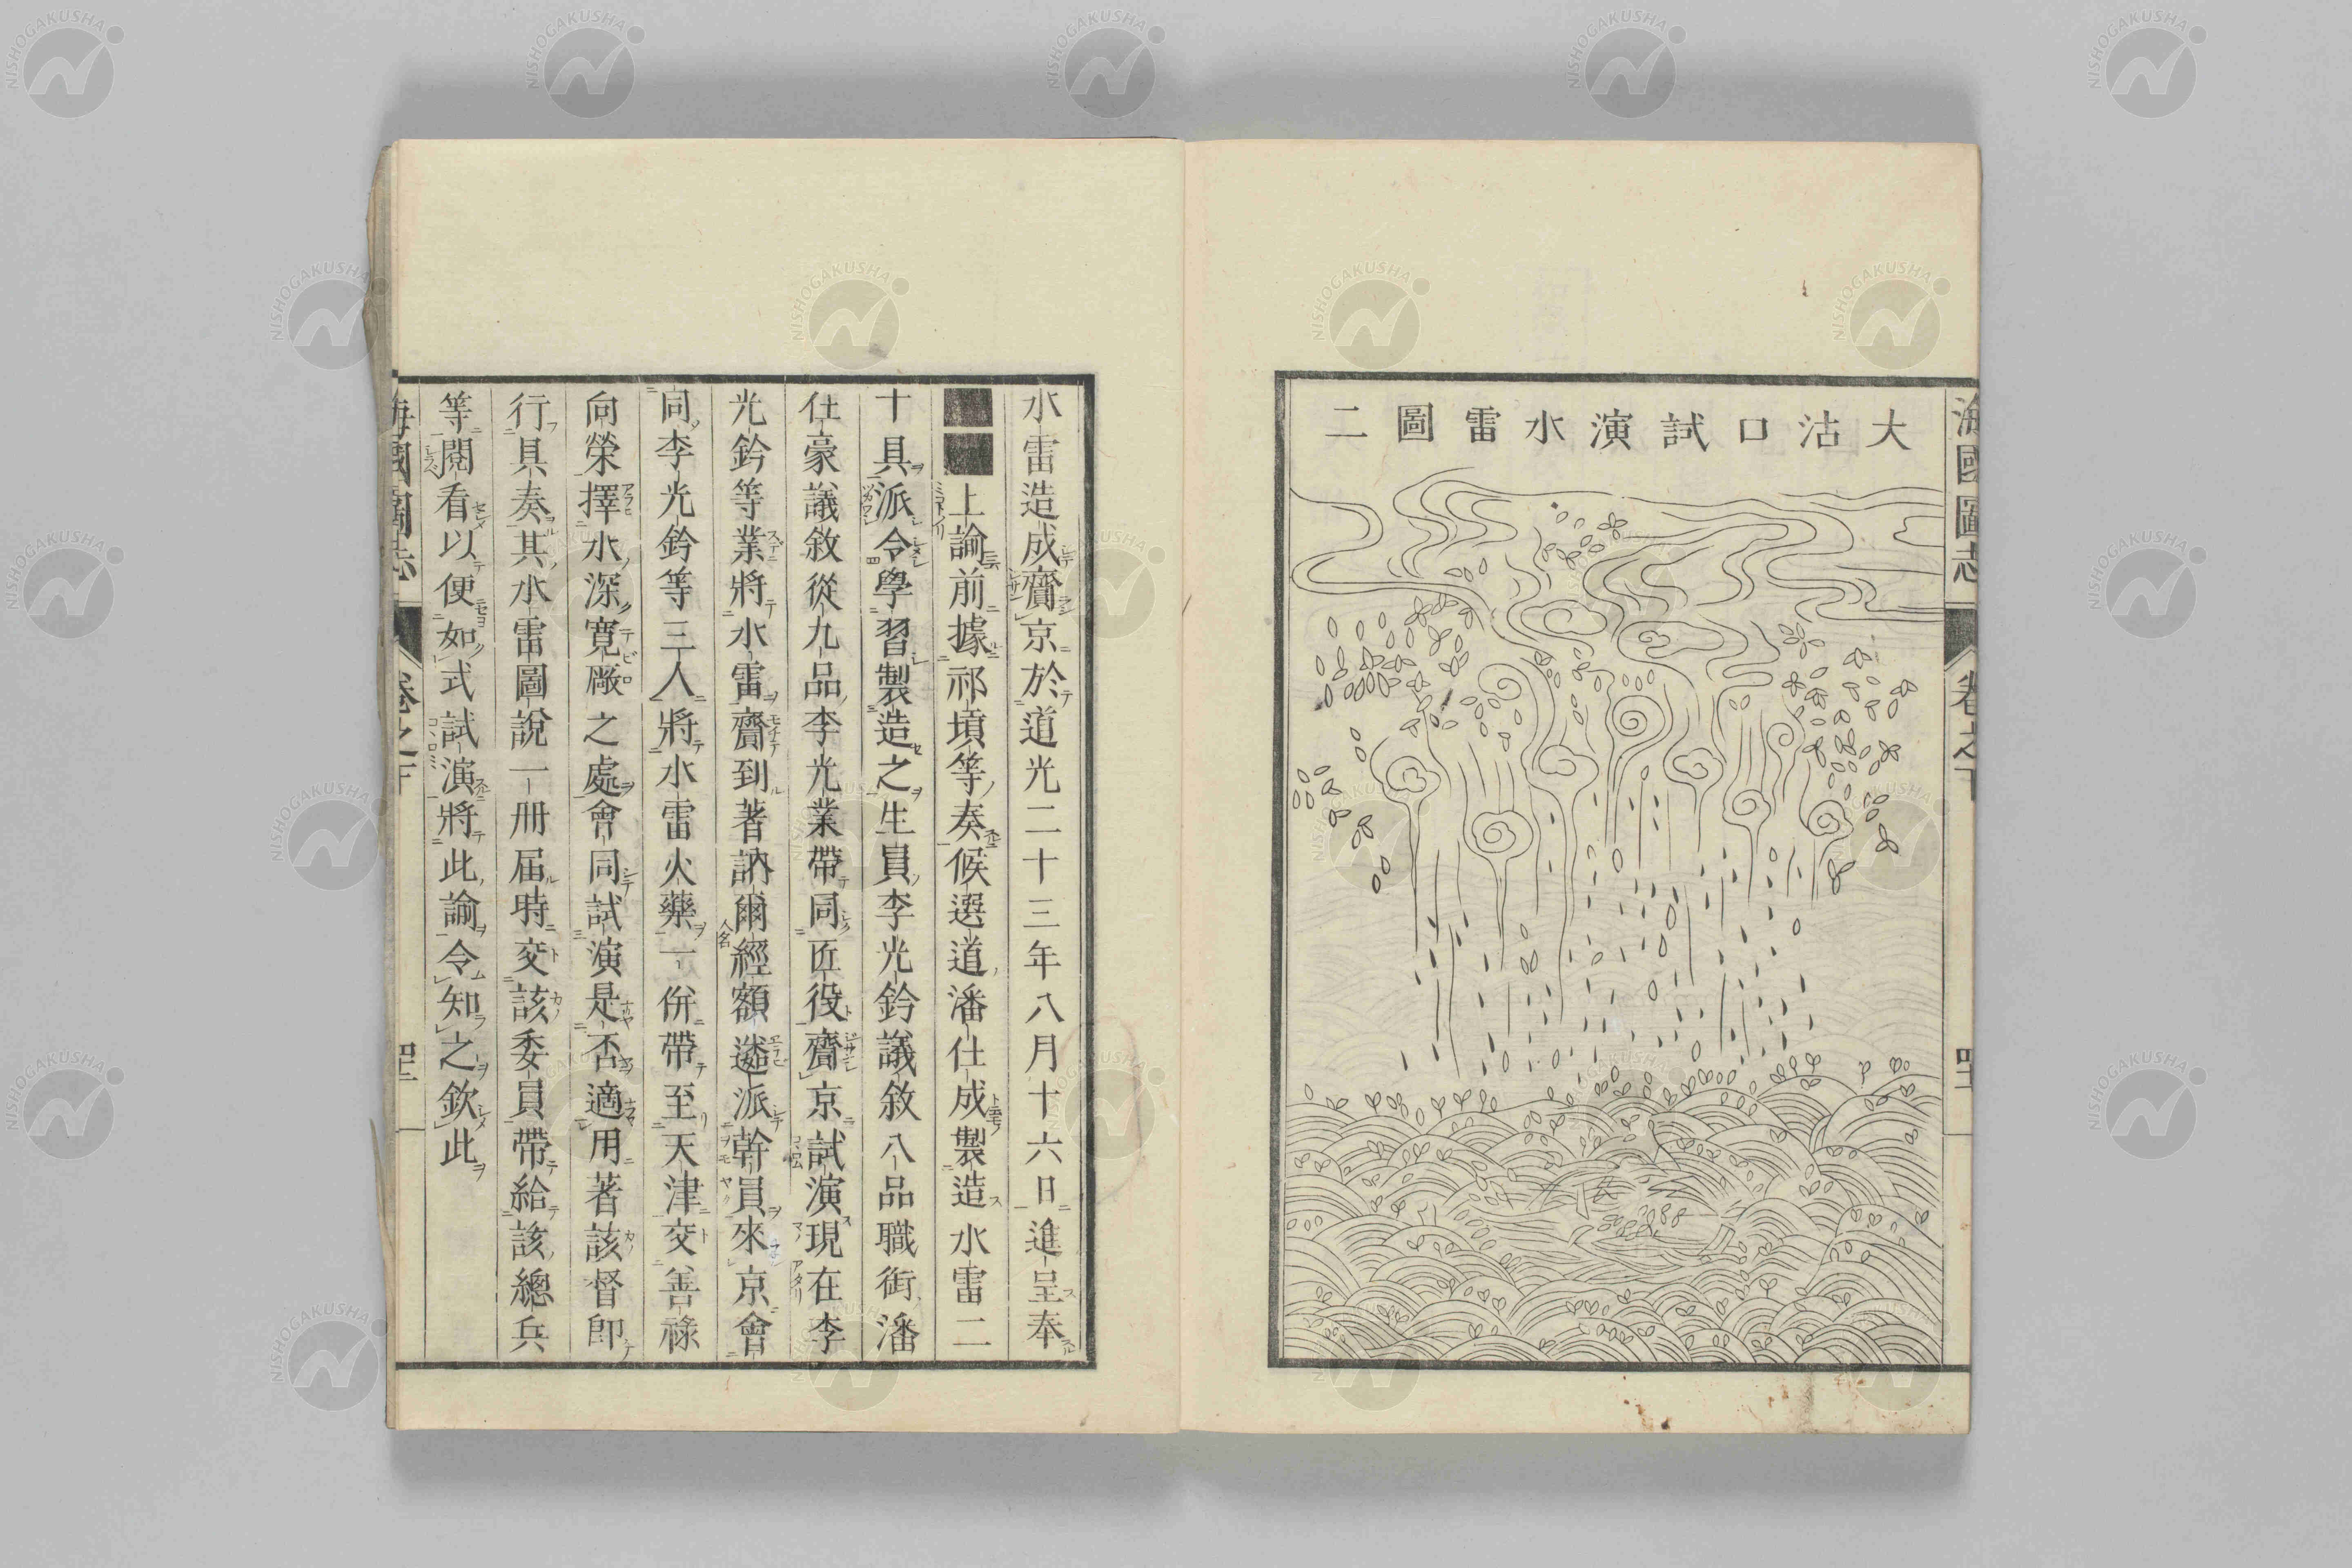 大沽口試演水雷圖二
海國圖志
卷之下
水雷造成齎京於道光二十三年八月十六日進呈奉
上諭前據祁𡎴等奏候選道潘仕成製造水雷二
十具派令學習製造之生員李光鈐議敘八品職銜潘
仕豪議敘從九品李光業帶同匠役齎京試演現在李
光鈐等業將水雷齎到著訥爾經額遴派幹員來京會
同李光鈐等三人將水雷火藥一併帶至天津交善祿
向榮擇水深寬廠之處會同試演是否適用著該督即
行具奏其水雷圖說一冊届時交該委員帶給該總兵
等閱看以便如式試演將此諭令知之欽此
海國圖志
NISHOGAKUSHA